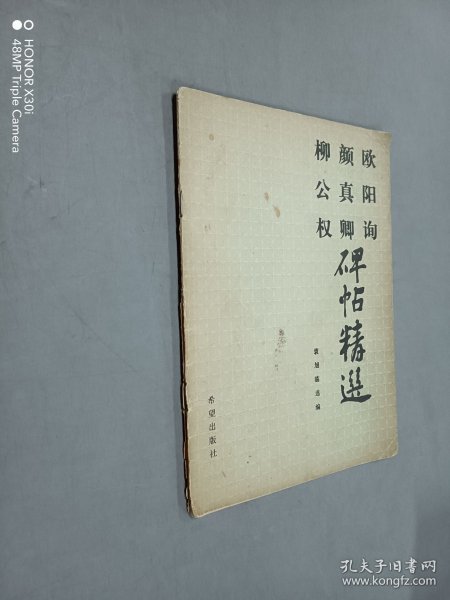 HONOR X30i
48MP Triple Camera
欧阳询
颜真卿
柳公权
碑帖精選
希望出版社
孔夫子旧书网
www.kongfz.com